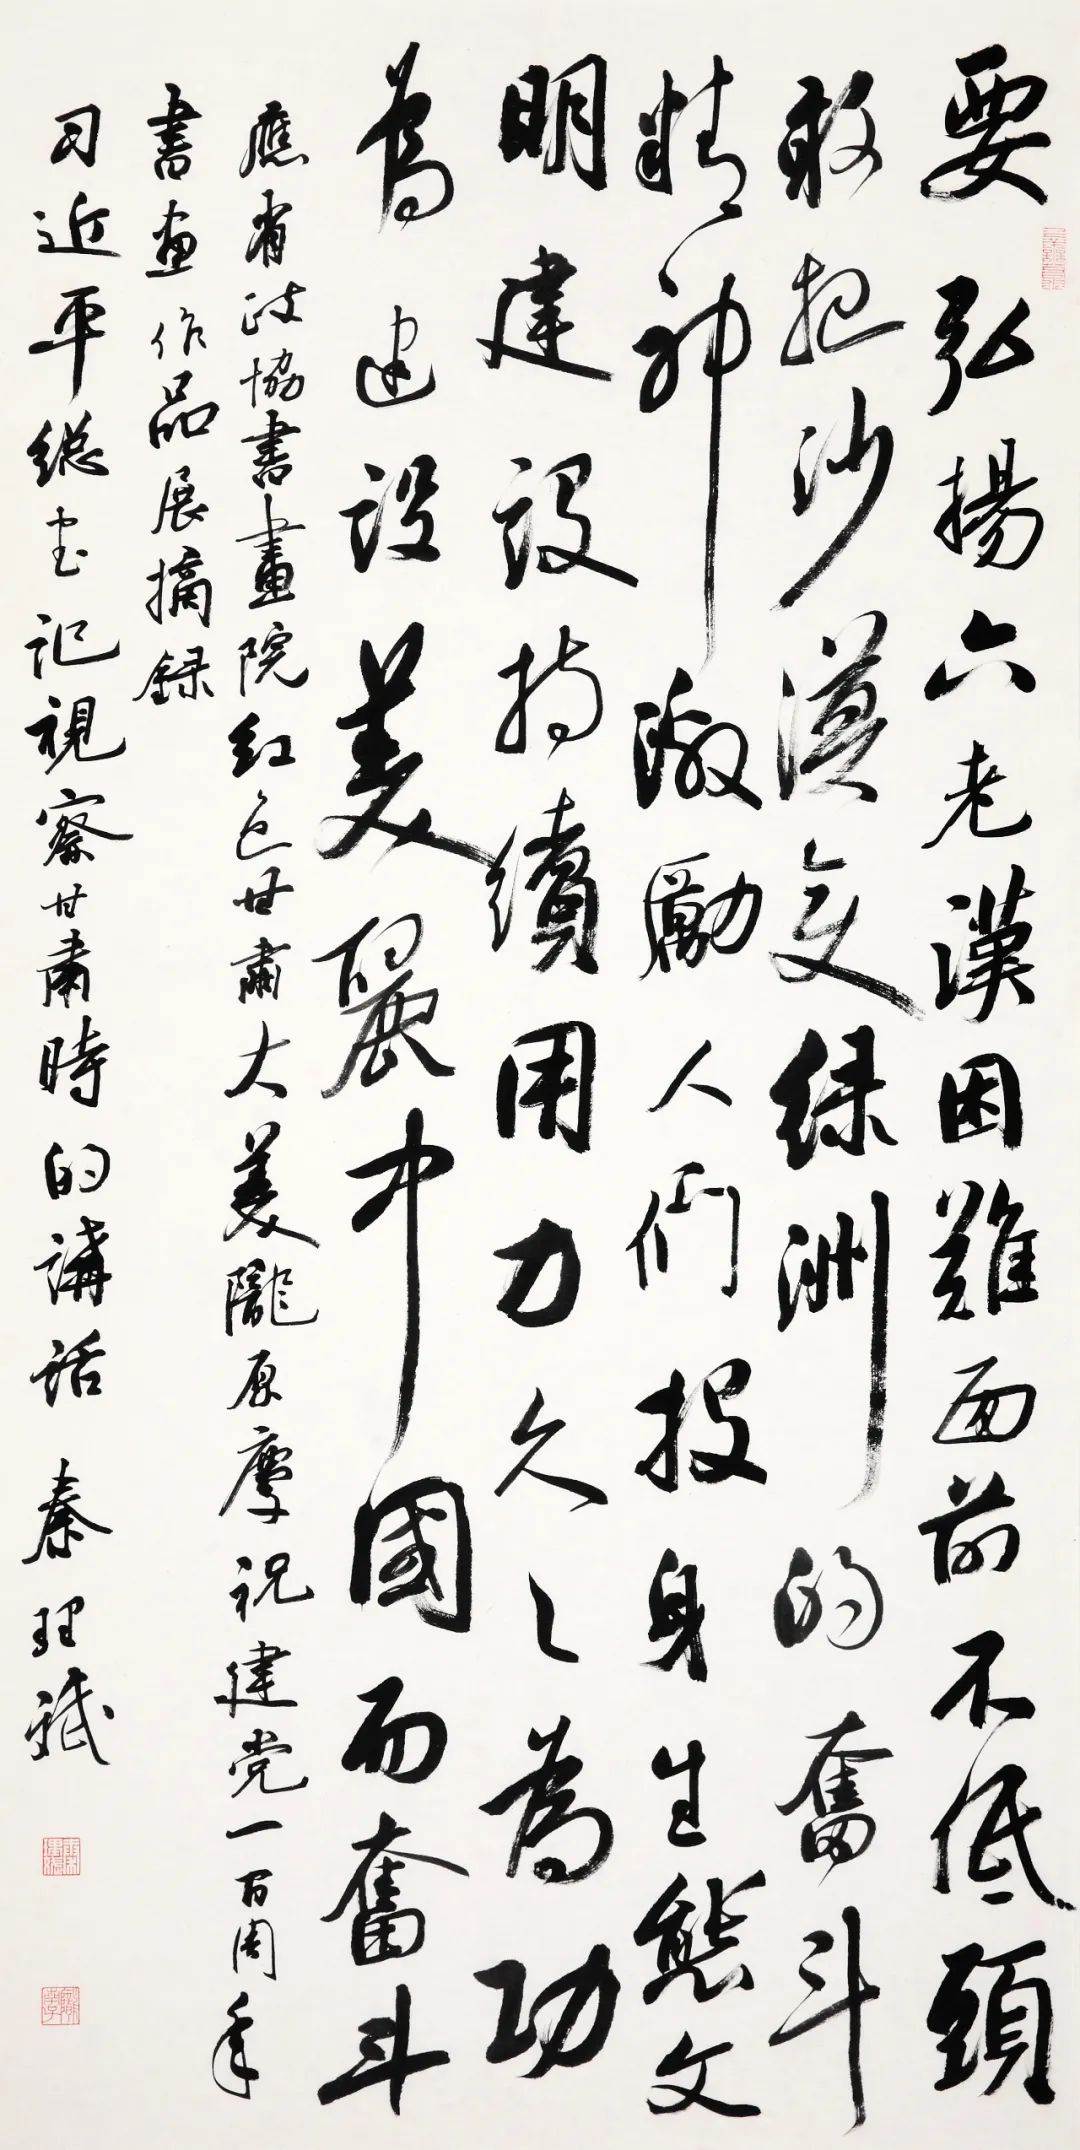 要弘揚六老漢困難面前不低頭
敢把沙漠变緑洲的奮斗
精神激勵人們投身生態文
明建設持續用力久久為功
為建設美麗中國而奮斗
應省政協書畫院红色甘肅大美隴原慶祝建党一百周年
書画作品展摘録
習近平總書記視察甘肅時的講話 秦理斌